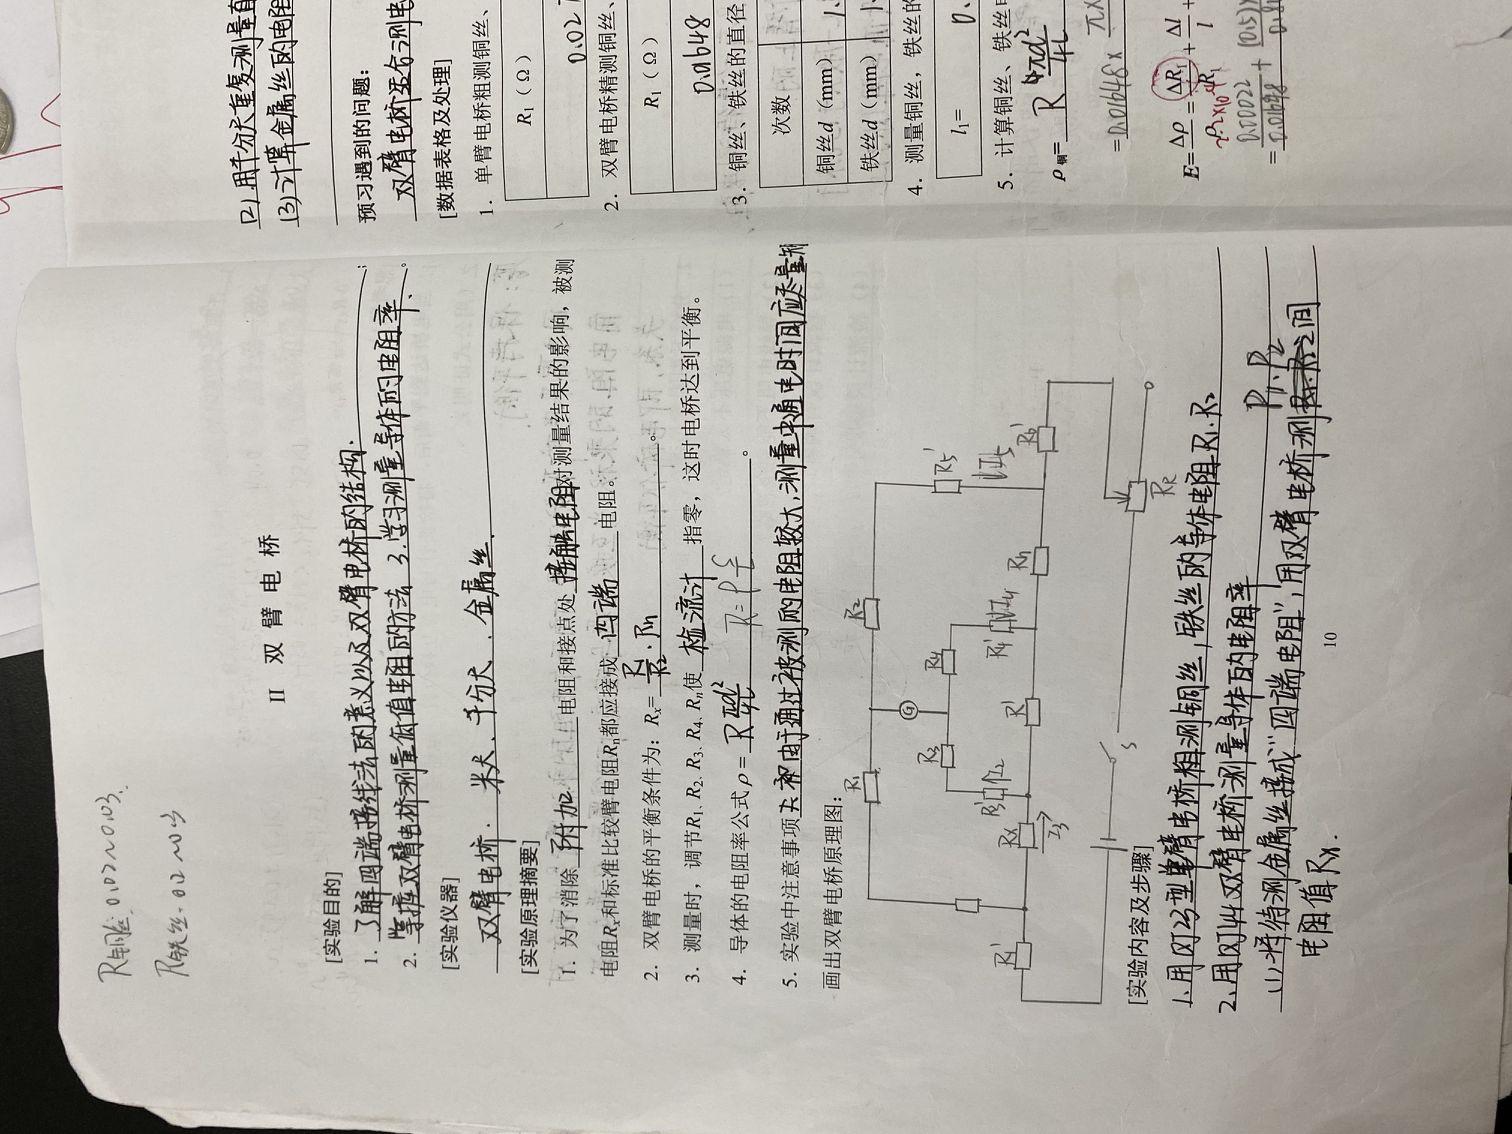 R铜丝 0.02～0.03.
R铁丝. 0.2～0.3
II 双臂电桥
[实验目的]
1. 了解四端接线法的意义以及双臂电桥的结构. ;
2. 掌握双臂电桥测量低值电阻的方法 3.学习测量导体的电阻率. 。
[实验仪器]
双臂电桥. 米尺、千分尺、金属丝.
[实验原理摘要]
1. 为了消除 附加 电阻和接点处 接触电阻 对测量结果的影响，被测
电阻Rx和标准比较臂电阻Rn都应接成 四端 电阻。
2. 双臂电桥的平衡条件为：Rx= R1/R2 · Rn 。
3. 测量时，调节R1、R2、R3、R4、Rn使 检流计 指零，这时电桥达到平衡。
4. 导体的电阻率公式ρ= R πd²/4L R=ρ 。
5. 实验中注意事项 由于通过被测的电阻较大，测量中通电时间应尽量短
画出双臂电桥原理图：
R1 R2
G
R3 R4 R5'
R3' I2 R4' I4 I5
R1' Rx R' Rn R6'
I3
S
RP
[实验内容及步骤]
1.用QJ23型单臂电桥粗测铜丝，铁丝的导体电阻R1.R2
2.用QJ44双臂电桥测量导体的电阻率
P1、P2
(1)将待测金属丝接成“四端电阻”，用双臂电桥测之间
电阻值Rx.
10
(2).用千分尺重复测量直
(3)计算金属丝的电阻
预习遇到的问题：
双臂电桥适合测电
[数据表格及处理]
1. 单臂电桥粗测铜丝、
R1（Ω）
0.027
2. 双臂电桥精测铜丝、
R1（Ω）
0.01648
3. 铜丝、铁丝的直径
次数
铜丝d（mm） 1.
铁丝d（mm） 1.
4. 测量铜丝，铁丝的
l1= 0.
5. 计算铜丝、铁丝电
ρ铜= R 4πd²/4L
=0.01648× π×
E= Δρ/ρ = ΔR1/R1 + Δl/l +
2.2×10⁻⁴
= 0.00022/0.01648 +